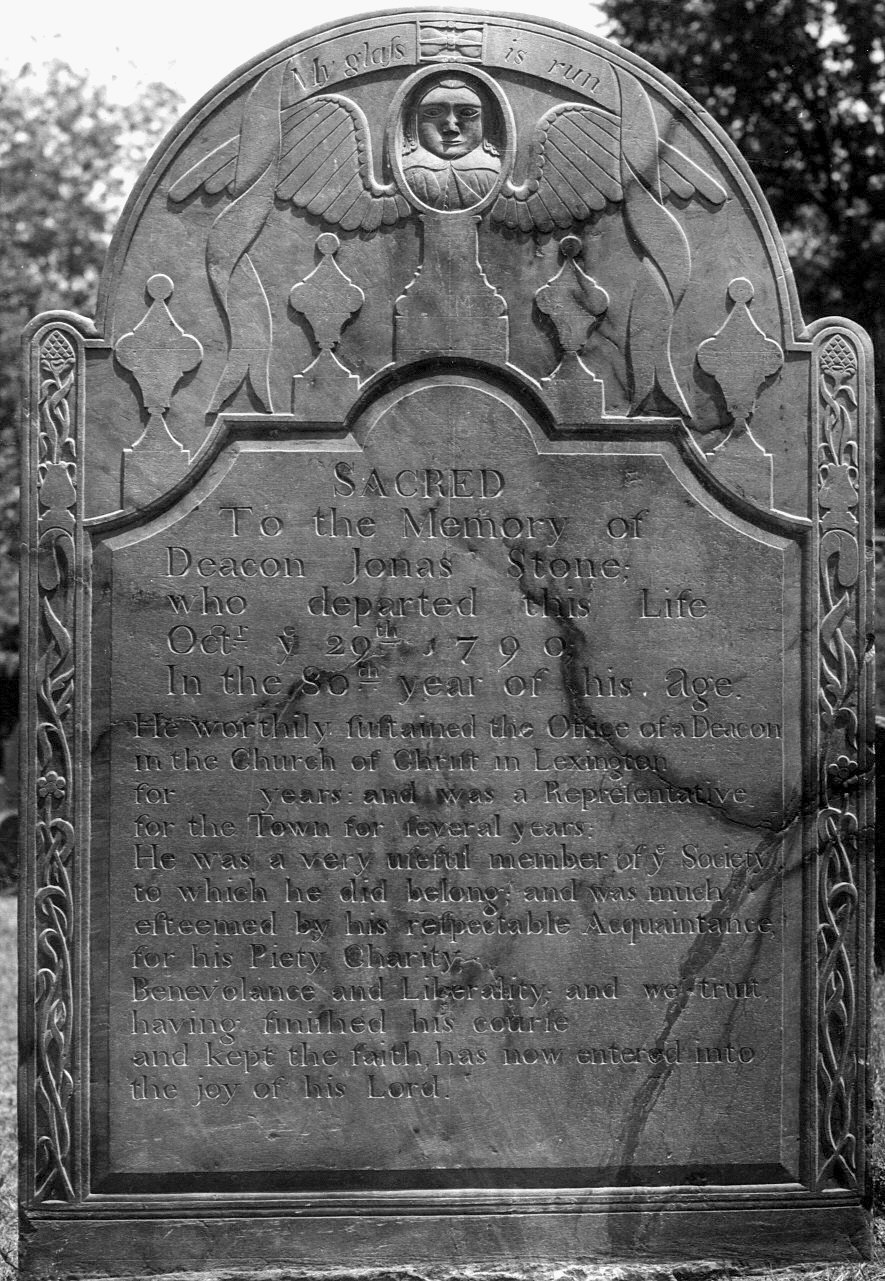 My glaſs is run
SACRED
To the Memory of
Deacon Jonas Stone;
who departed this Life
Octr. ye 29th. 1790.
In the 80th. year of his age.
He worthily ſuſtained the Office of a Deacon
in the Church of Chriſt in Lexington
for years: and was a Repreſentative
for the Town for ſeveral years:
He was a very uſeful member of ye Society
to which he did belong; and was much
eſteemed by his reſpectable Acquaintance,
for his Piety, Charity,
Benevolance and Liberality; and we truſt,
having finiſhed his courſe
and kept the faith, has now entered into
the joy of his Lord.